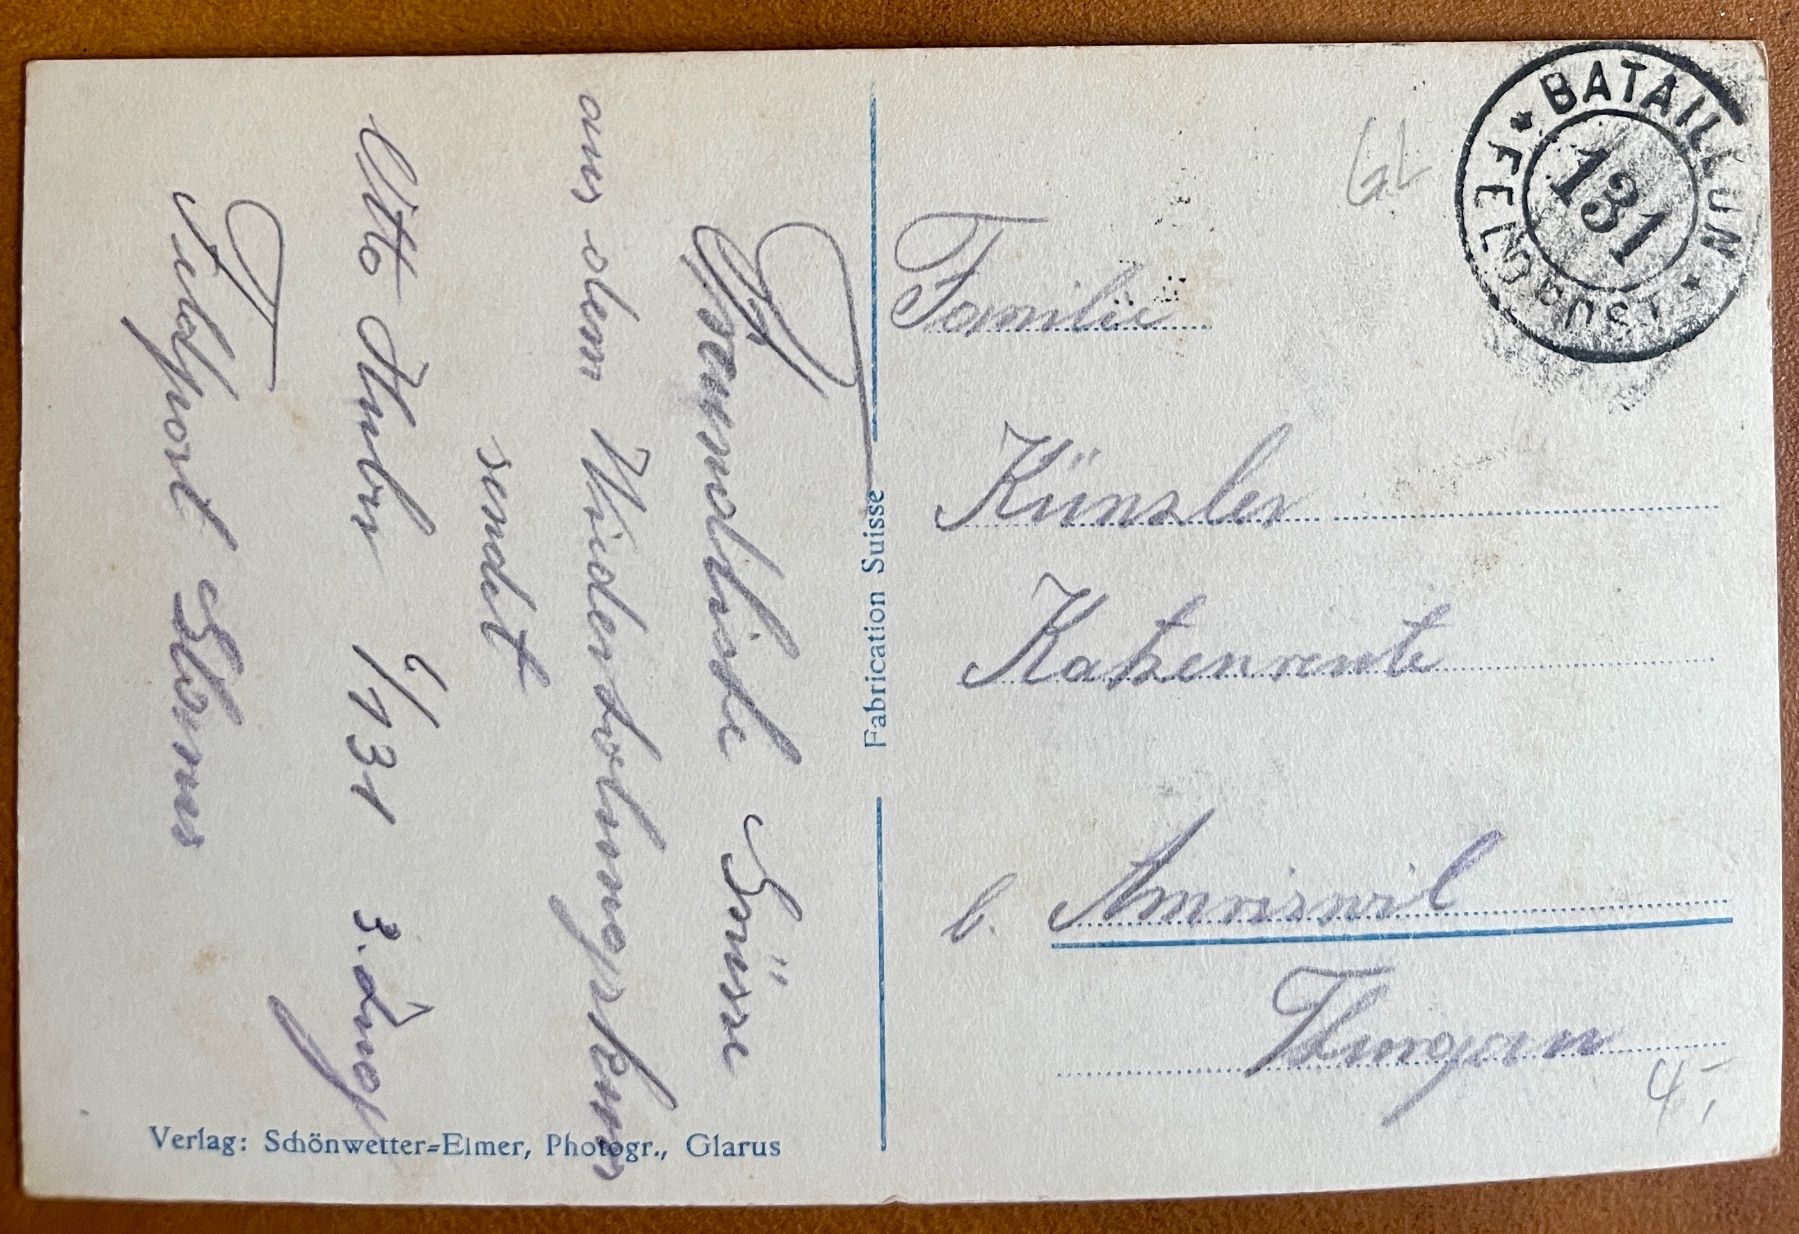 Freundliche Grüsse
aus dem Wiederholungskurs
sendet
Otto Huber 6/131 3. Zug
Feldpost Glarus
Fabrication Suisse
Verlag: Schönwetter=Elmer, Photogr., Glarus
BATAILLON
131
FELDPOST
GL
Familie
Künzler
Katzenreute
b. Amriswil
Thurgau
4.-